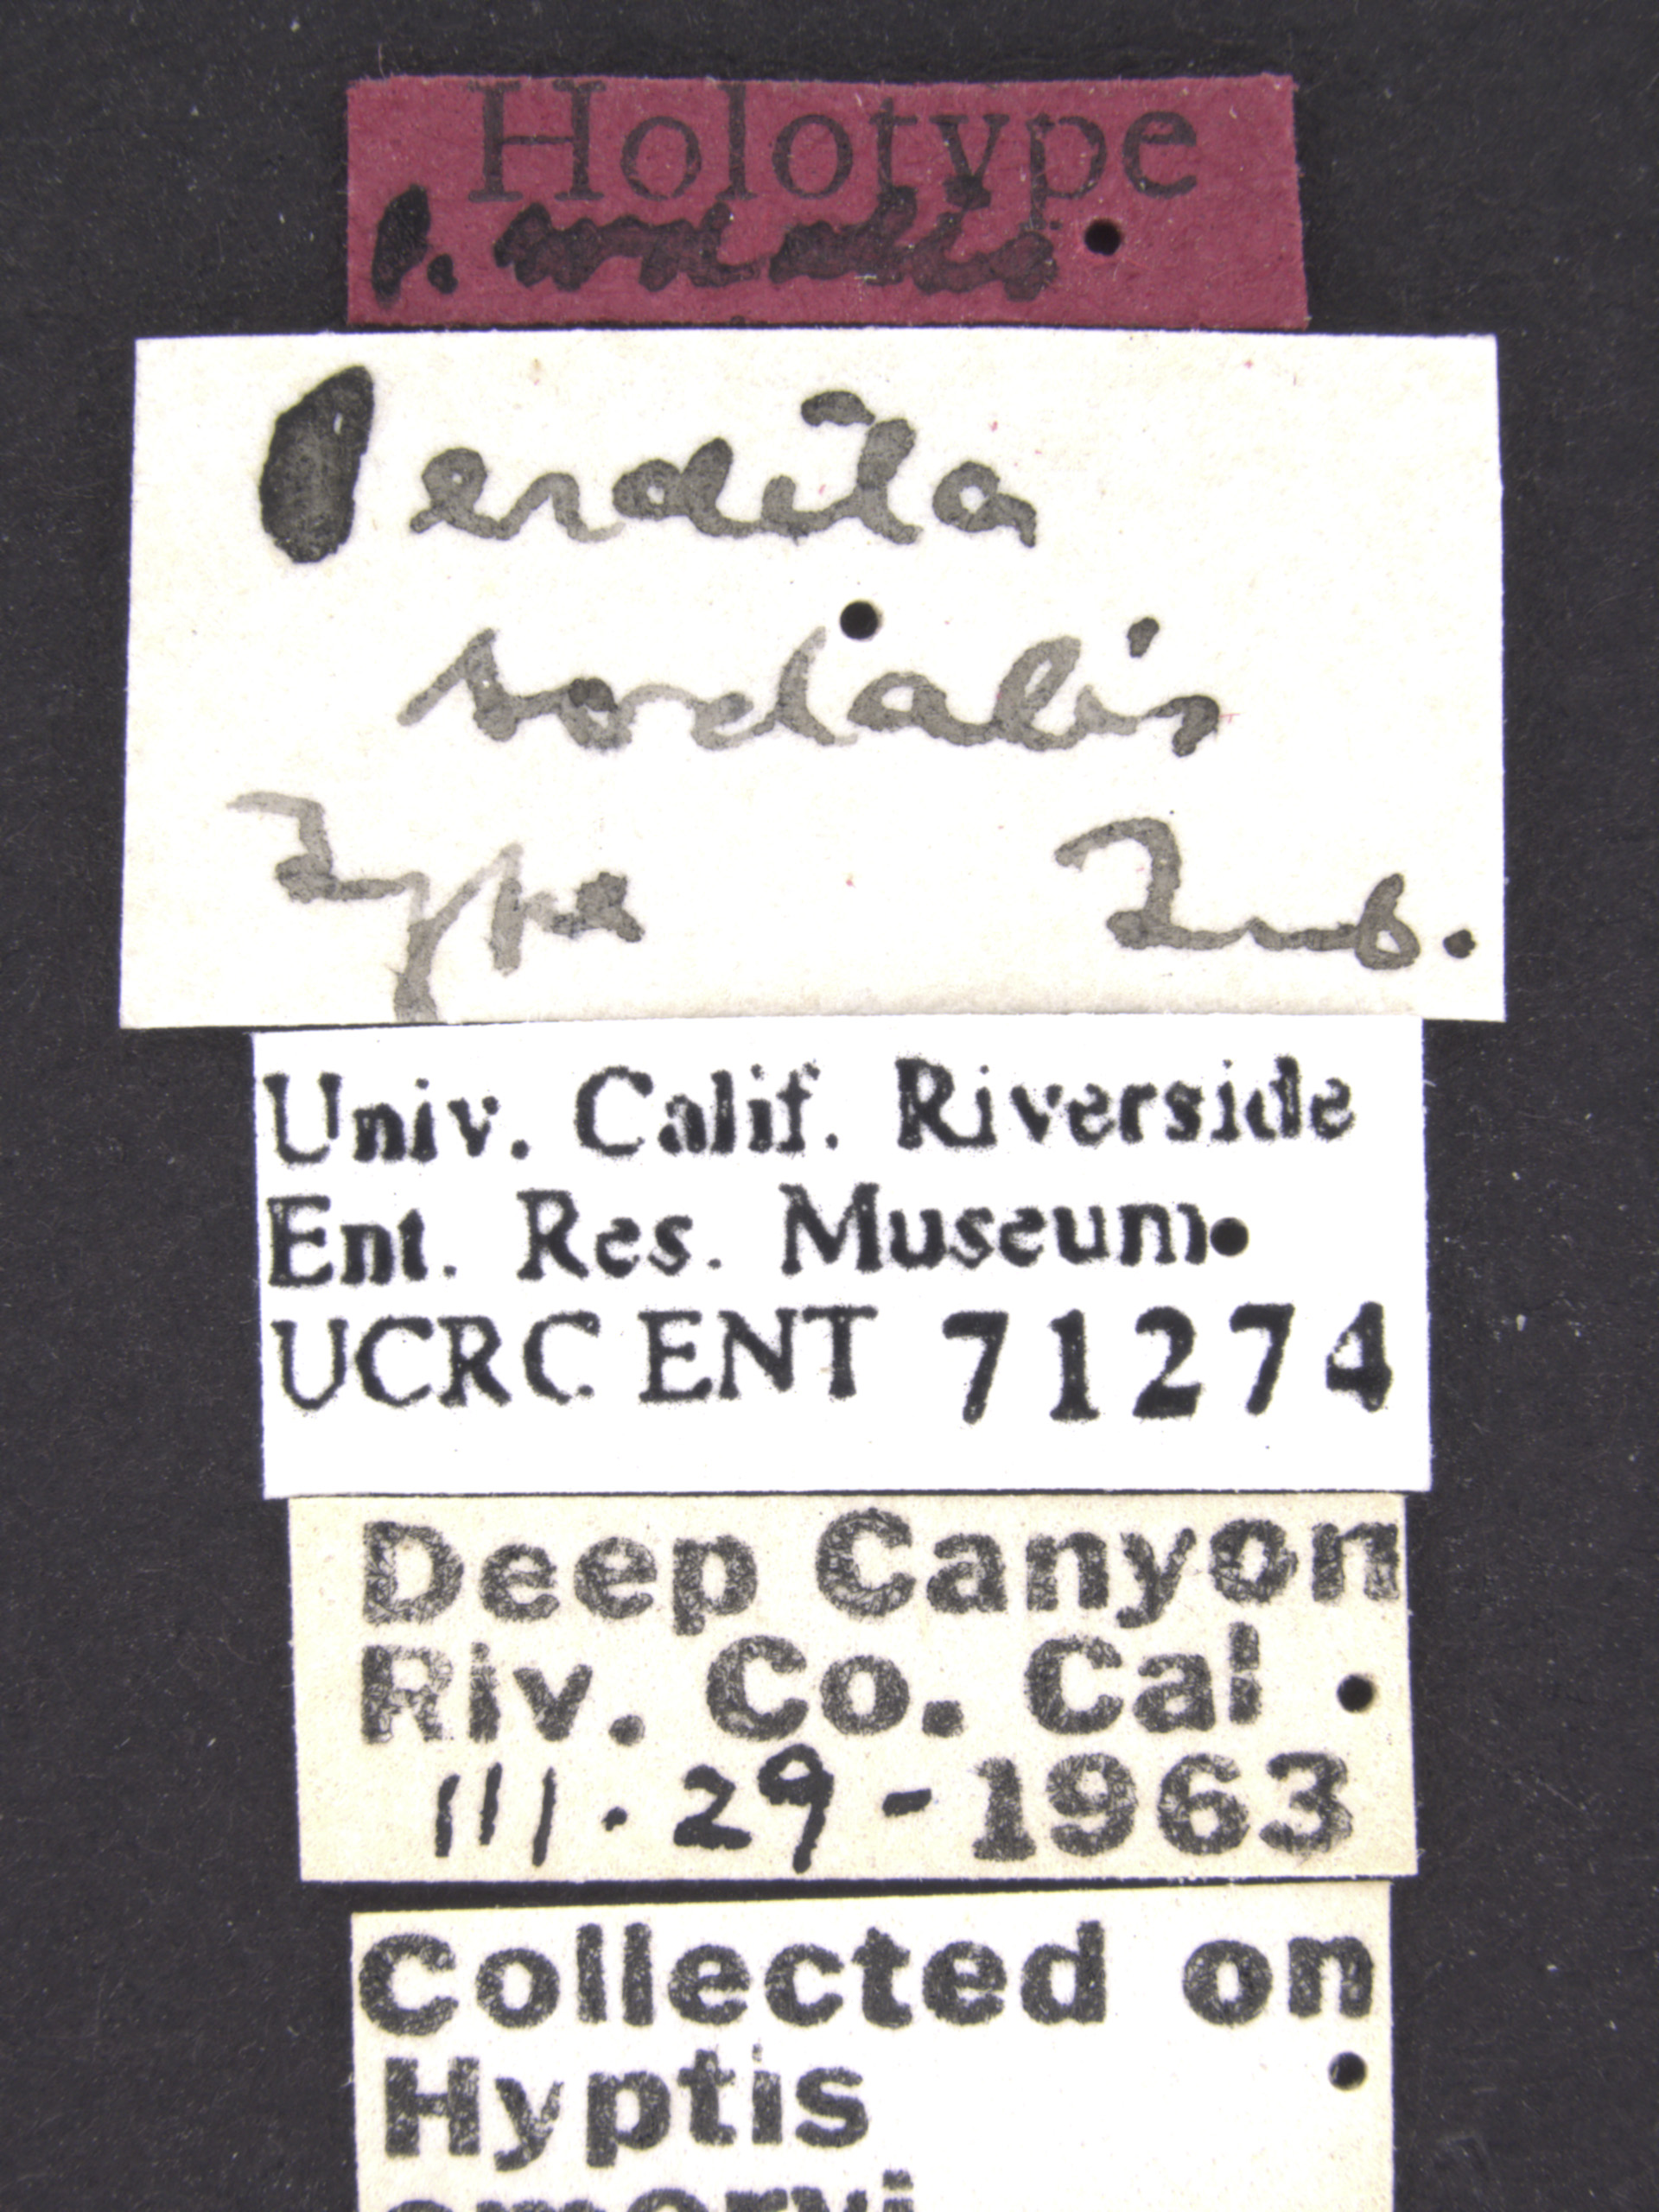 Holotype
P. sodalis
Perdita
sodalis
Type Timb.
Univ. Calif. Riverside
Ent. Res. Museum
UCRC ENT 71274
Deep Canyon
Riv. Co. Cal
III. 29 - 1963
Collected on
Hyptis
emoryi